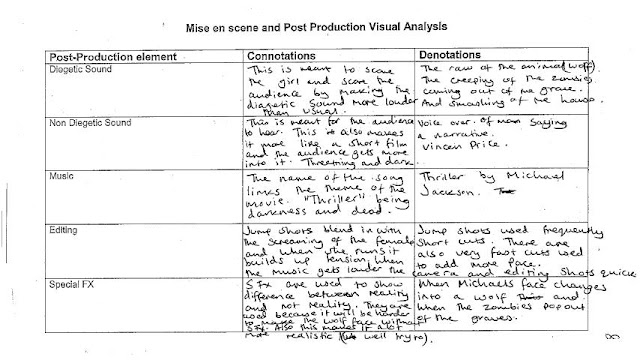 Mise en scene and Post Production Visual Analysis
Post-Production element
Connotations
Denotations
Diegetic Sound
This is meant to scare
the girl and scare the
audience by making the
diagetic sound more louder
than usual.
The raw of the animal (wolf)
The creeping of the zombies
coming out of the grave.
And smashing of the house.
Non Diegetic Sound
This is meant for the audience
to hear. This it also makes
it more like a short film
and the audience gets more
into it. Threatning and dark.
Voice over. of man saying
a narrative.
Vincen Price.
Music
The name of the song
links the theme of the
movie. "Thriller" being
darkness and dead.
Thriller by Michael
Jackson.
Editing
Jump shots blend in with
the screaming of the female
and when she runs it
builds up tension, when
the music gets louder the camera and editing shots quick
Jump shots used frequently
Short cuts. There are
also very fast cuts used
to add more pace.
Special FX
SFX are used to show
difference between reality
and not reality. They are
used because it will be harder
to make the wolf face without
SFX. Also this makes it a lot
more realistic (well try to)
When Michaels face changes
into a wolf and
when the zombies pop out
of the graves.